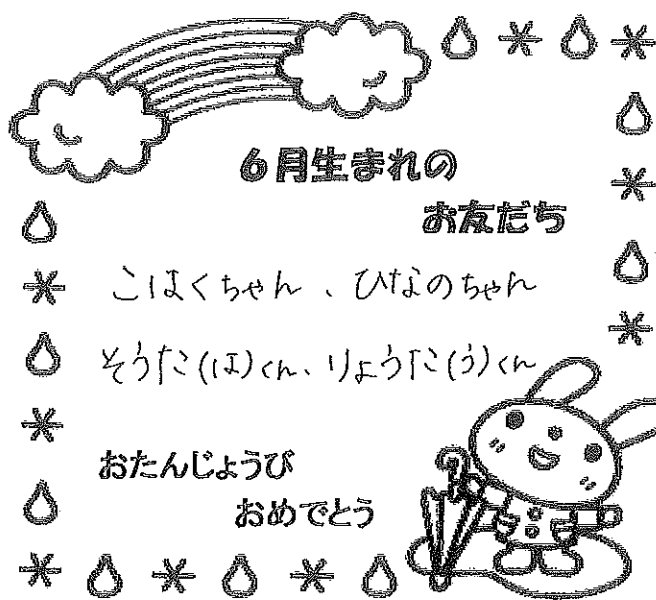 6月生まれの
お友だち
こはくちゃん、ひなのちゃん
そうた(は)くん、りょうた(う)くん
おたんじょうび
おめでとう